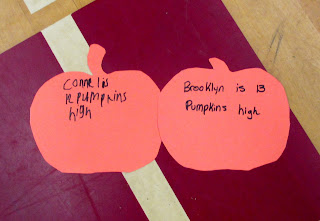 Connel is
pumpkins
high
Brooklyn is 13
Pumpkins high